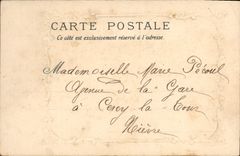 CARTE POSTALE
Ce côté est exclusivement réservé à l'adresse.
Mademoiselle Marie
Avenue de la Gare
à Cercy-la-Tour
Nièvre